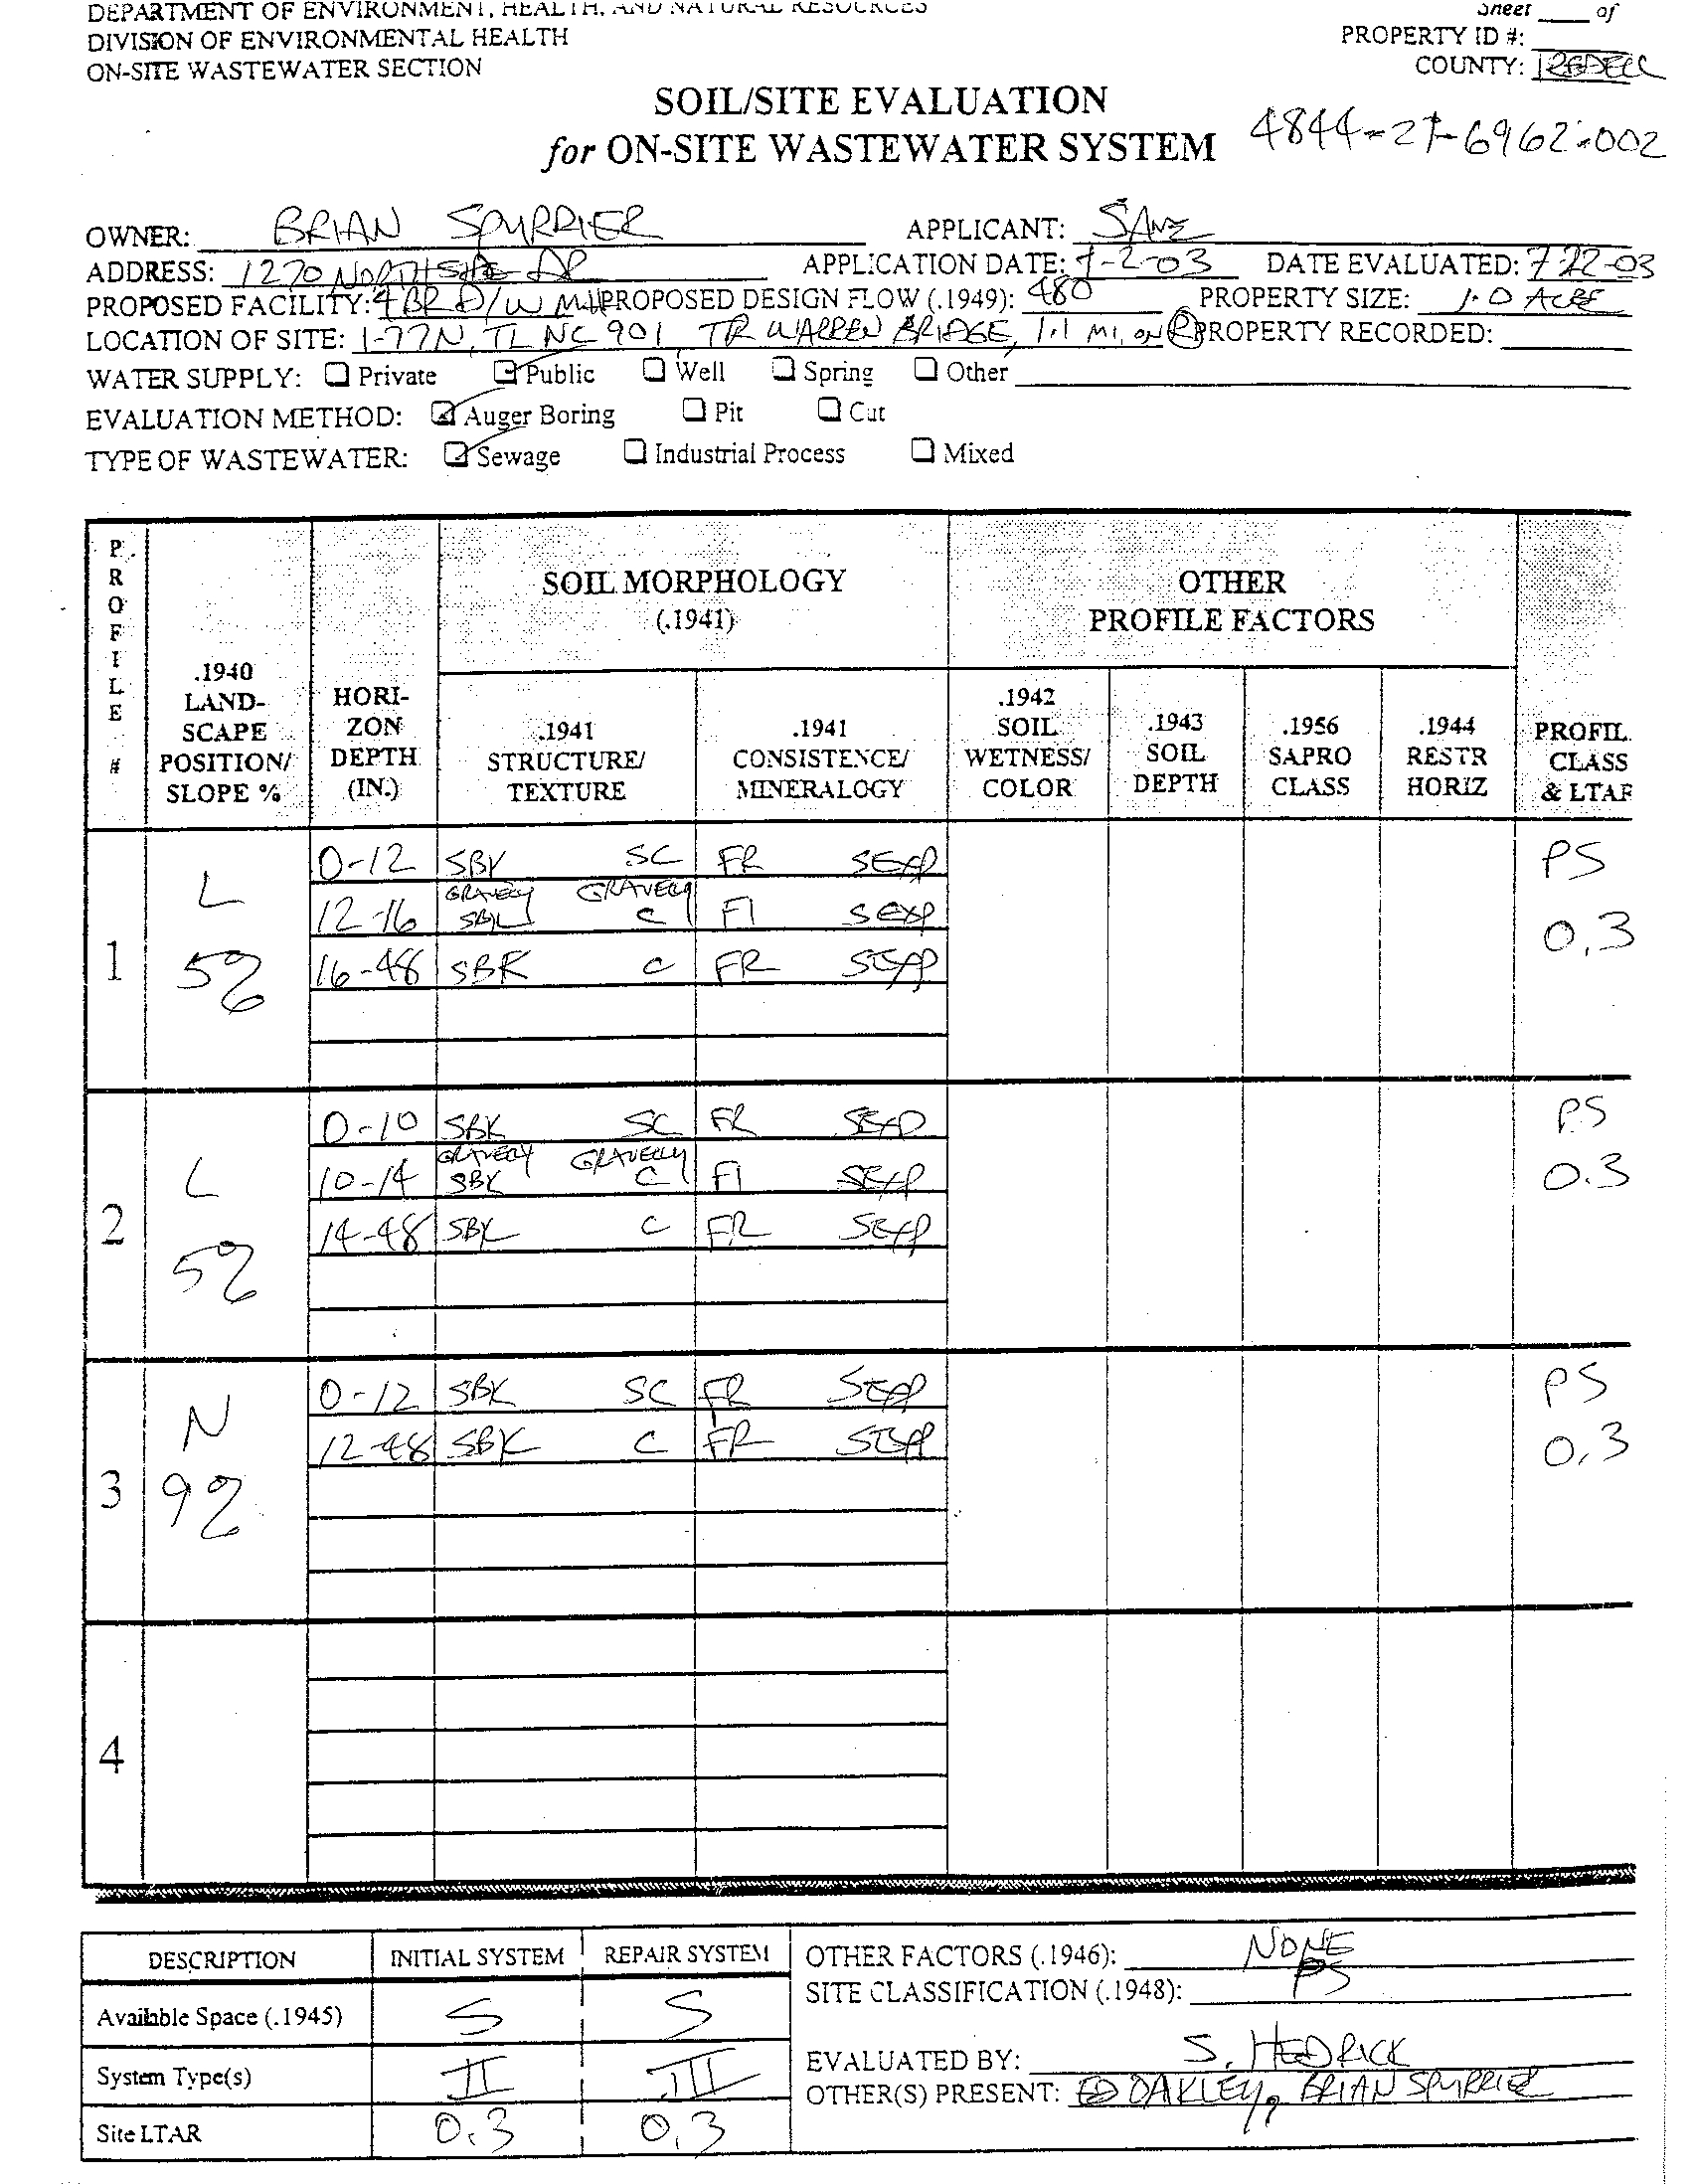 DEPARTMENT OF ENVIRONMENT, HEALTH, AND NATURAL RESOURCES
Sheet ____ of
DIVISION OF ENVIRONMENTAL HEALTH
PROPERTY ID #:
ON-SITE WASTEWATER SECTION
COUNTY: IREDELL
SOIL/SITE EVALUATION
for ON-SITE WASTEWATER SYSTEM
4844-27-6962.002
OWNER: BRIAN SPURRIER APPLICANT: SAME
ADDRESS: 1270 NORTHSIDE DR APPLICATION DATE: 7-2-03 DATE EVALUATED: 7-22-03
PROPOSED FACILITY: 4 BR D/W MH PROPOSED DESIGN FLOW (.1949): 480 PROPERTY SIZE: 1.0 ACRE
LOCATION OF SITE: I-77N, TL NC 901, TR WARREN BRIDGE, 1.1 MI, ON R PROPERTY RECORDED:
WATER SUPPLY: Private Public Well Spring Other
EVALUATION METHOD: Auger Boring Pit Cut
TYPE OF WASTEWATER: Sewage Industrial Process Mixed
PROFILE #
.1940 LAND-SCAPE POSITION/ SLOPE %
HORI-ZON DEPTH (IN.)
SOIL MORPHOLOGY (.1941)
.1941 STRUCTURE/ TEXTURE
.1941 CONSISTENCE/ MINERALOGY
OTHER PROFILE FACTORS
.1942 SOIL WETNESS/ COLOR
.1943 SOIL DEPTH
.1956 SAPRO CLASS
.1944 RESTR HORIZ
PROFIL. CLASS & LTAR
1 L 5%
0-12 SBK SC FR SEXP
12-16 GRAVELY SBK GRAVELLY C FI SEXP
16-48 SBK C FR SEXP
PS 0.3
2 L 5%
0-10 SBK SC FR SEXP
10-14 GRAVELY SBK GRAVELLY C FI SEXP
14-48 SBK C FR SEXP
PS 0.3
3 N 9%
0-12 SBK SC FR SEXP
12-48 SBK C FR SEXP
PS 0.3
4
DESCRIPTION INITIAL SYSTEM REPAIR SYSTEM
Available Space (.1945) S S
System Type(s) II III
Site LTAR 0.3 0.3
OTHER FACTORS (.1946): NONE
SITE CLASSIFICATION (.1948): PS
EVALUATED BY: S. HEDRICK
OTHER(S) PRESENT: ED OAKLEY, BRIAN SPURRIER